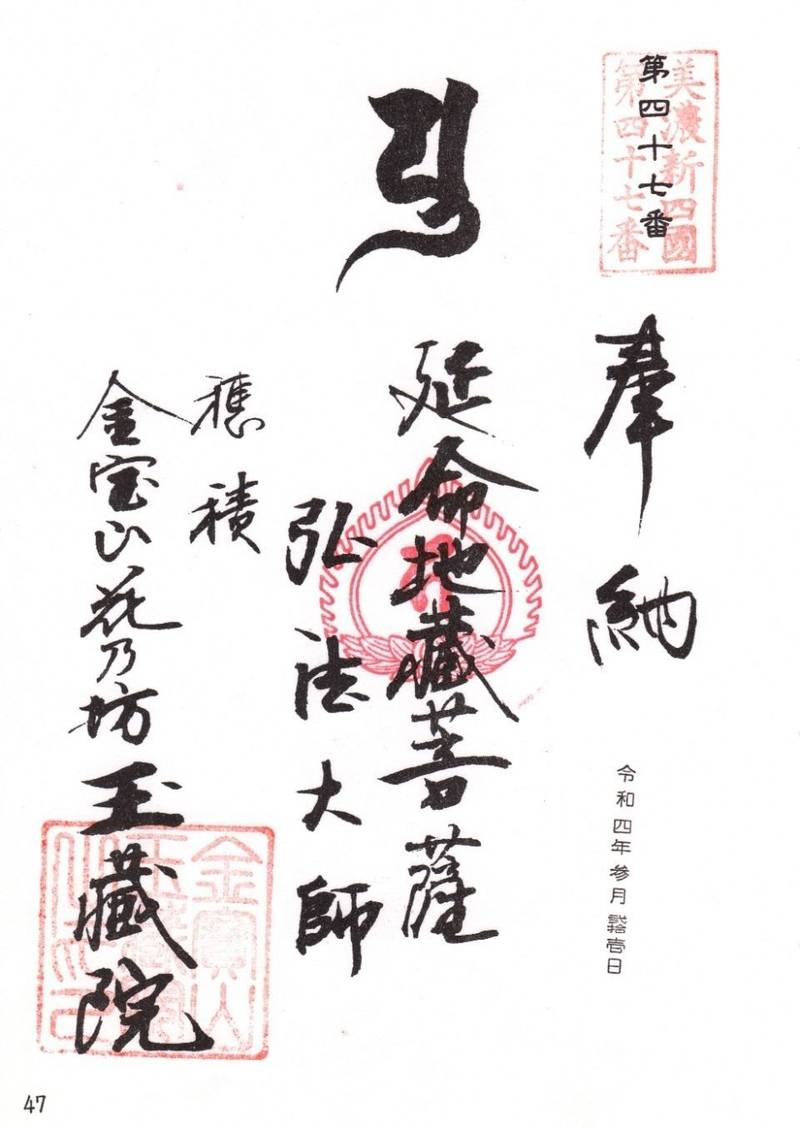 第四十七番
美濃新四國
第四十七番
奉納
令和四年参月弐拾壱日
延命地藏菩薩
弘法大師
穂積
金宝山花乃坊玉藏院
47